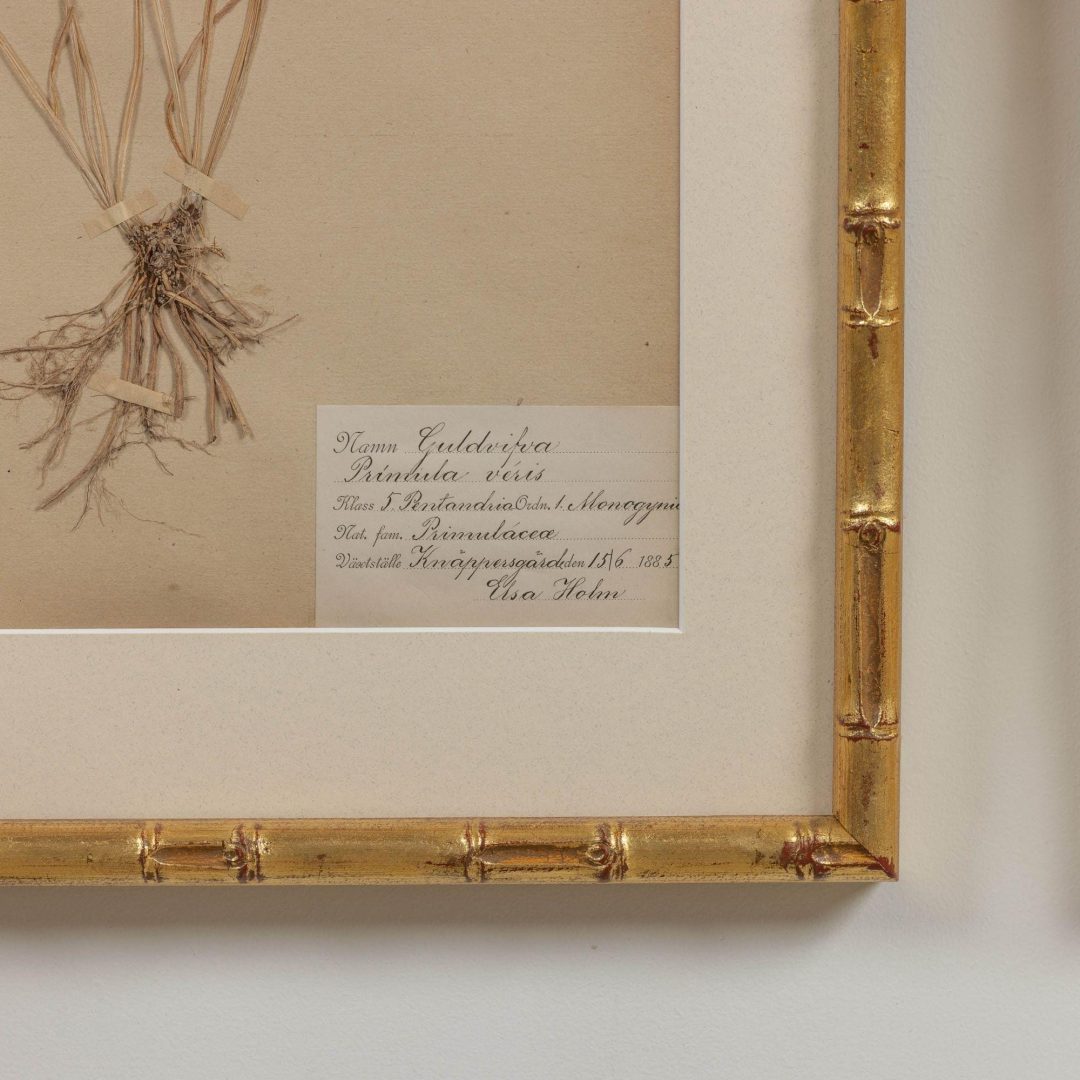 Namn Guldvifva
Prímula véris
Klass 5. Pentandria Ordn. 1. Monogyni
Nat. fam. Primuláceæ
Växtställe Knäppersgärde den 15/6 1885
Elsa Holm